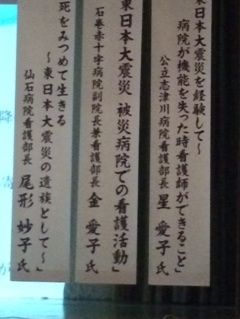 東日本大震災を経験して～
病院が機能を失った時看護師ができること」
公立志津川病院看護部長 星 愛子 氏
東日本大震災 被災病院での看護活動」
石巻赤十字病院副院長兼看護部長 金 愛子 氏
死をみつめて生きる
～東日本大震災の遺族として～」
仙石病院看護部長 尾形 妙子 氏